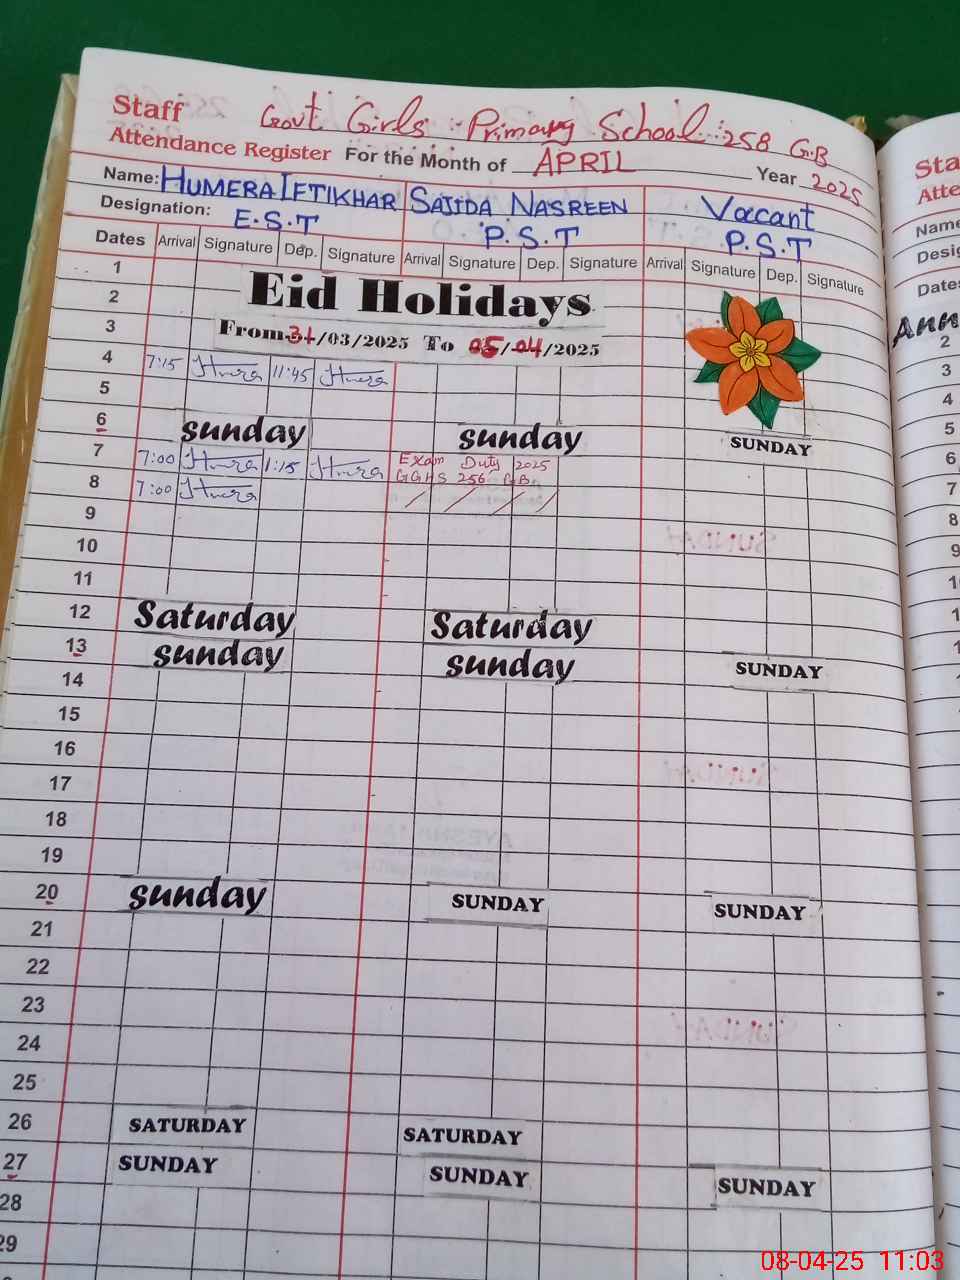 Staff Govt Girls Primary School 258 G.B
Attendance Register For the Month of APRIL Year 2025
Name: HUMERA IFTIKHAR SAJIDA NASREEN Vacant
Designation: E.S.T P.S.T P.S.T
Dates Arrival Signature Dep. Signature Arrival Signature Dep. Signature Arrival Signature Dep. Signature
1
2 Eid Holidays
3 From 31/03/2025 To 05/04/2025
4 7:15 Humera 11:45 Humera
5
6 sunday sunday SUNDAY
7 7:00 Humera 1:15 Humera Exam Duty 2025
8 7:00 Humera GGHS 256 GB
9
10
11
12 Saturday Saturday
13 sunday sunday SUNDAY
14
15
16
17
18
19
20 sunday SUNDAY SUNDAY
21
22
23
24
25
26 SATURDAY SATURDAY
27 SUNDAY SUNDAY SUNDAY
28
29
Sta
Atte
Name
Desig
Dates
Ann
2
3
4
5
6
7
8
9
08-04-25 11:03